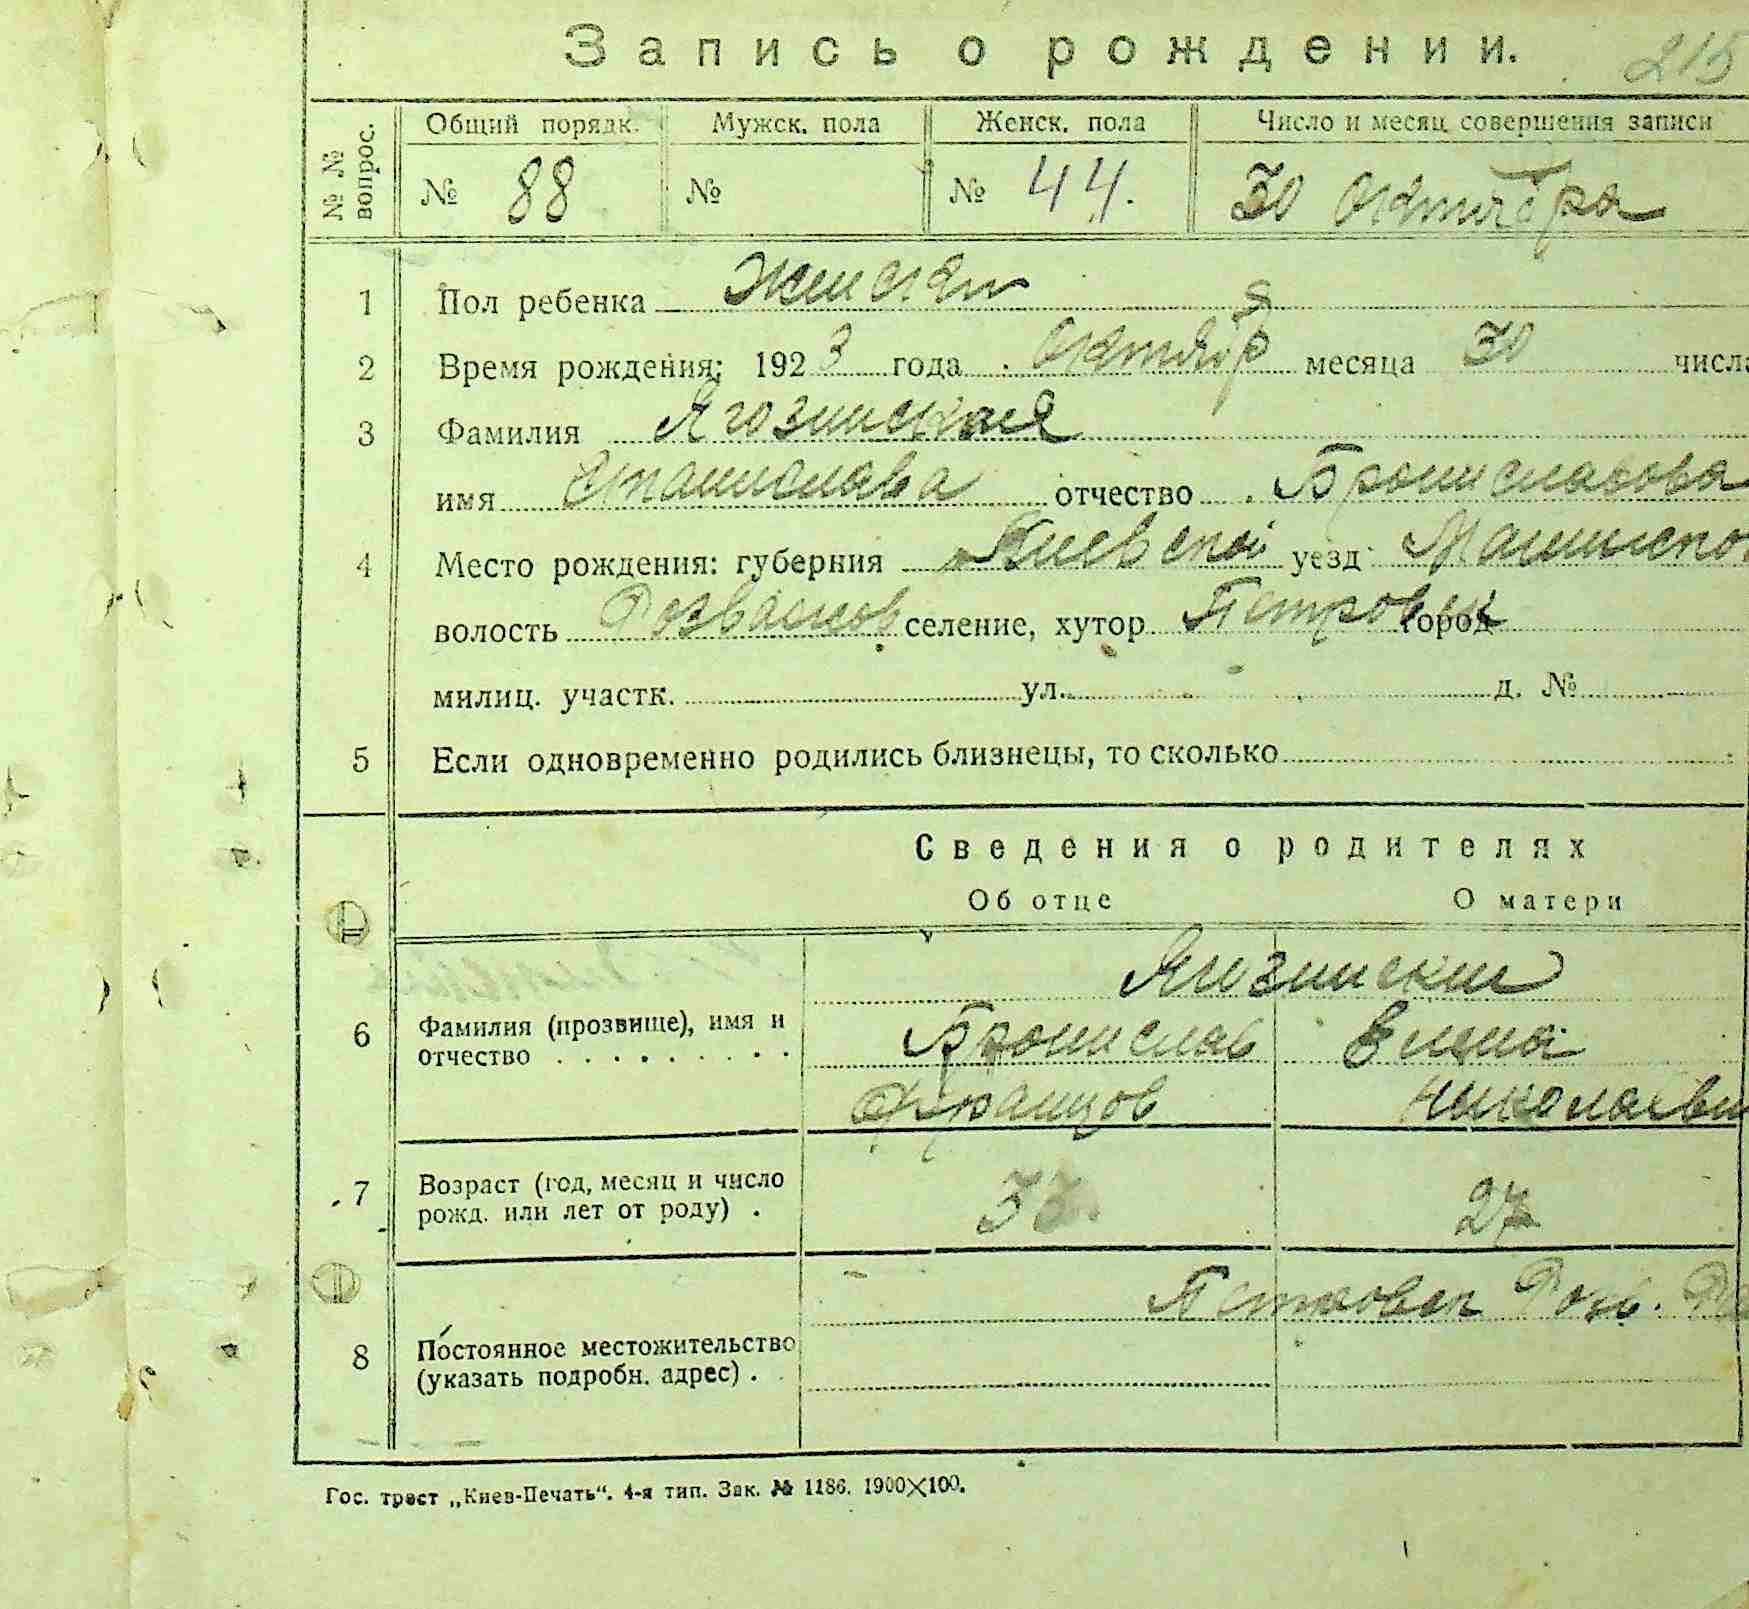 Запись о рождении. 215
№ № вопрос. Общий порядк. Мужск. пола Женск. пола Число и месяц совершения записи
№ 88 № № 44. 30 октября
1 Пол ребенка женский
2 Время рождения: 1923 года октября месяца 30 числа
3 Фамилия Ягозинская
имя Станислава отчество Брониславова
4 Место рождения: губерния Киевской уезд
волость селение, хутор город
милиц. участк. ул. д. №
5 Если одновременно родились близнецы, то сколько
Сведения о родителях
Об отце О матери
Ягозинские
6 Фамилия (прозвище), имя и отчество Бронислав Елена
Францов Николаевн
7 Возраст (год, месяц и число рожд. или лет от роду) . 33. 27
8 Постоянное местожительство (указать подробн. адрес) .
Гос. трест „Киев-Печать“. 4-я тип. Зак. № 1186. 1900×100.